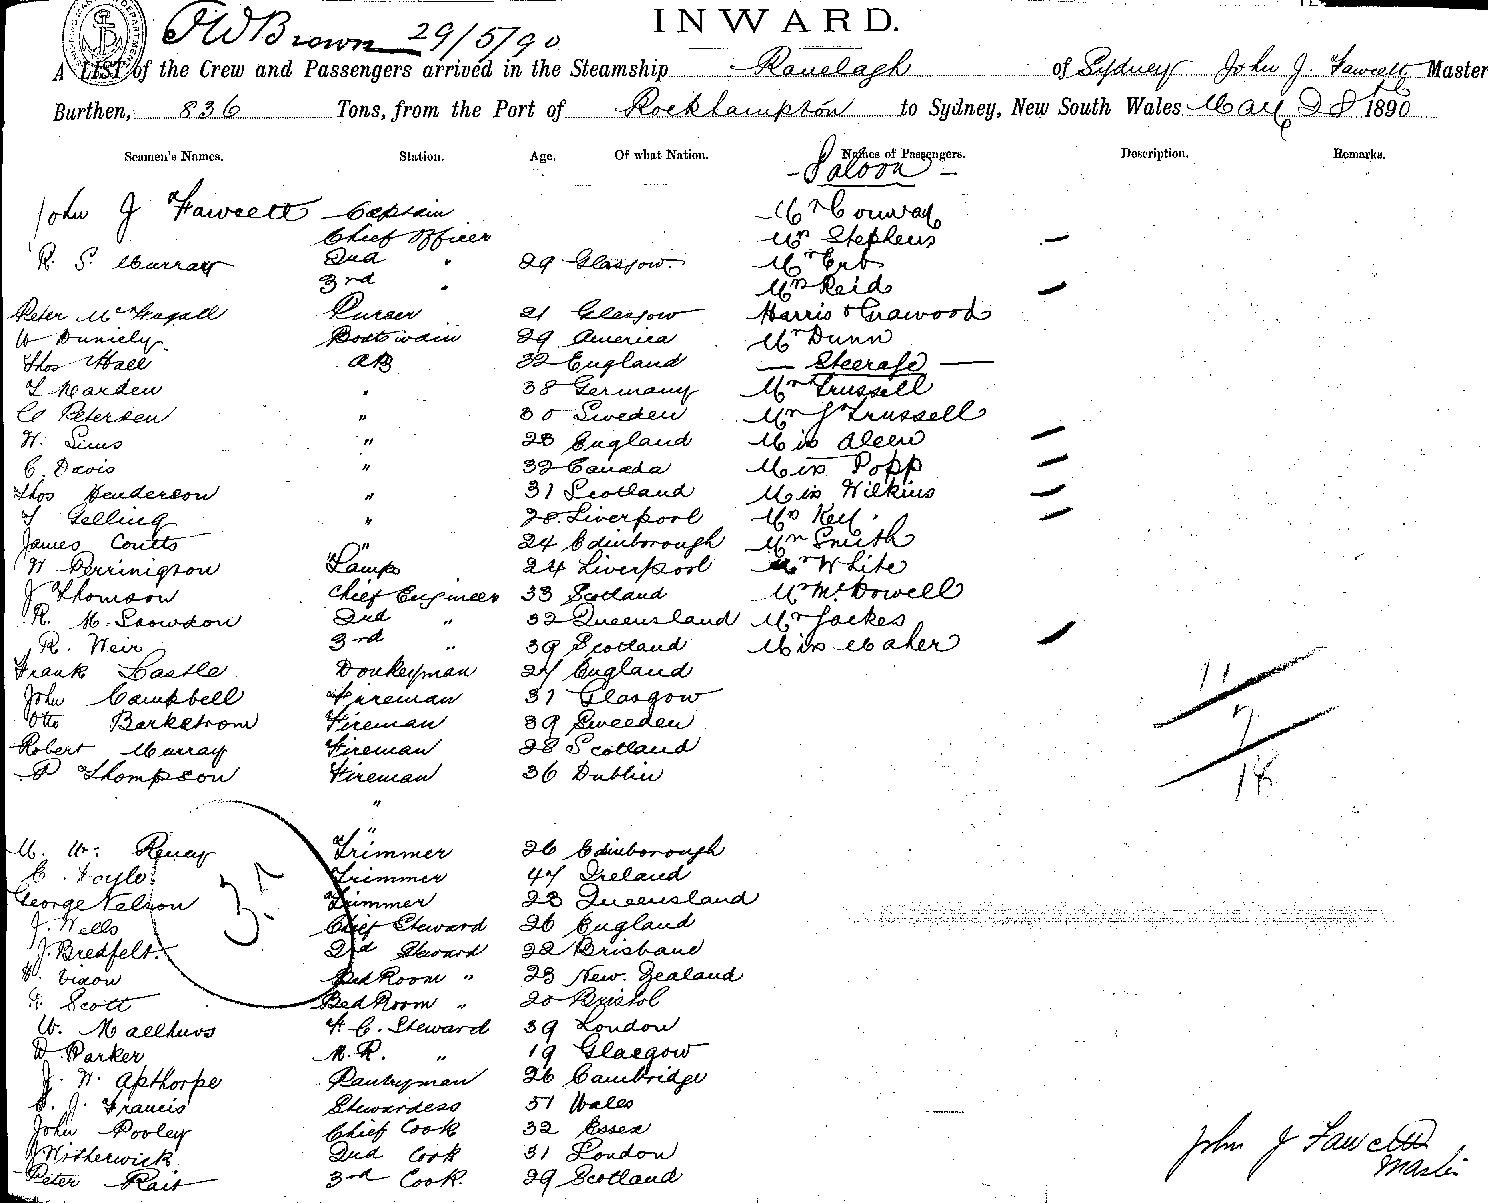 JWBrown 29/5/90
INWARD.
A LIST of the Crew and Passengers arrived in the Steamship Ranelagh of Sydney John J. Fawcett Master
Burthen, 836 Tons, from the Port of Rockhampton to Sydney, New South Wales May 28 1890
Seamen's Names. Station. Age. Of what Nation. Names of Passengers. Description. Remarks.
- Saloon -
John J Fawcett Captain Mr Conway
Chief Officer Mrs Stephens
R. S. Murray 2nd " 29 Glasgow. Mr Erb
3rd " Mrs Reid
Peter Mc Purser 21 Glasgow Harris & Crawood
W Boatswain 29 America Mr Dunn
Thos Hall AB 32 England — Steerage —
T Marden " 38 Germany Mr Trussell
C Petersen " 30 Sweden Mr J Trussell
W. Sims " 23 England Miss Aleen
C. Davis " 32 Canada Miss Popp
Thos Henderson " 31 Scotland Miss Wilkins
T Gelling " 28 Liverpool Key
James Coutts " 24 Edinborough Mr Smith
W Perrington Lamps 24 Liverpool Mr White
J Thomson Chief Engineer 33 Scotland Mr McDowell
R. M. Snowdon 2nd " 32 Queensland Mr Jackes
R. Weir 3rd " 39 Scotland Miss Maher
Frank Castle Donkeyman 27 England 11
John Campbell Fireman 31 Glasgow
Otto Barkstrom Fireman 39 Sweeden 7
Robert Murray Fireman 28 Scotland
P Thompson Fireman 36 Dublin 18
"
"
M. W. Trimmer 26 Edinborough
C. Foyle Trimmer 47 Ireland
George Nelson Trimmer 23 Queensland
37
J. Wells Chief Steward 26 England
J. Bredfelt. 2nd Steward 22 Brisbane
Dixon Bed Room " 23 New. Zealand
F Scott Bed Room " 20 Bristol
W. F. C. Steward 39 London
D Parker M. R. " 19 Glasgow
J. W. Apthorpe Pantryman 26 Cambridge
J. Francis Stewardess 51 Wales
John Pooley Chief Cook 32 Essex
J Motherwick 2nd Cook 31 London
Peter Rait 3rd Cook. 29 Scotland
John J Fawcett
Master